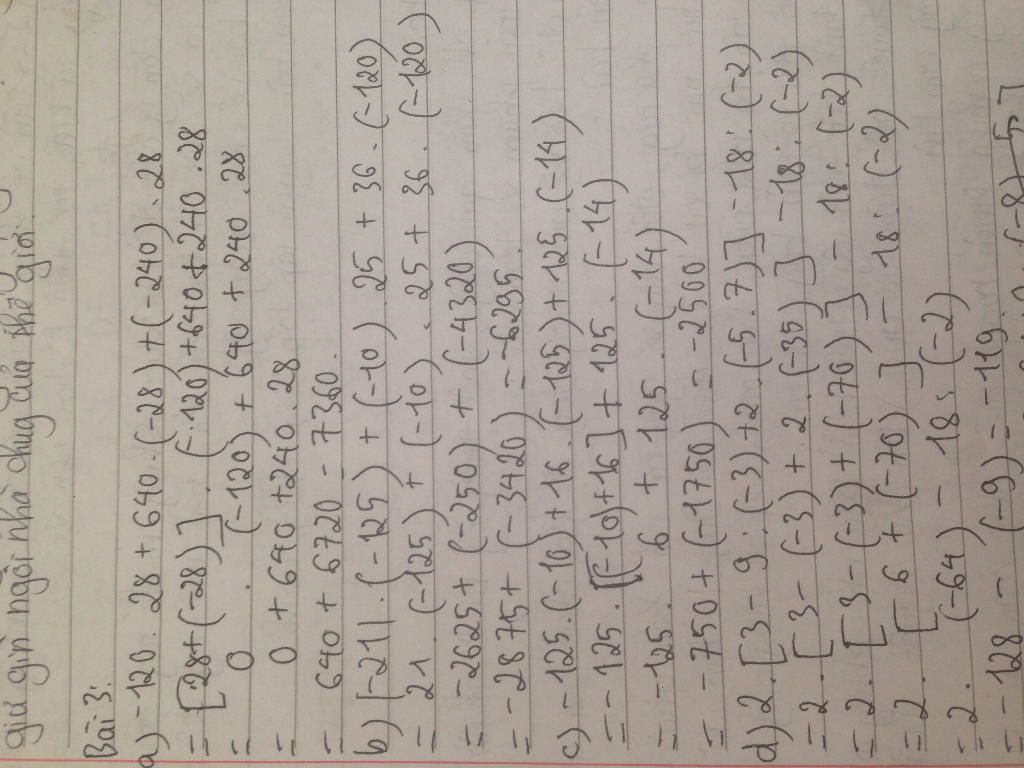 giữ gìn ngôi nhà chug của thế giới.
Bài 3:
a) -120 . 28 + 640 . (-28) + (-240) . 28
= [28+(-28)] . (-120) + 640 + 240 . 28
= 0 . (-120) + 640 + 240 . 28
= 0 + 640 + 240 . 28
= 640 + 6720 = 7360.
b) |-21| . (-125) + (-10) . 25 + 36 . (-120)
= 21 . (-125) + (-10) . 25 + 36 . (-120)
= -2625 + (-250) + (-4320)
= -2875 + (-3420) = -6295.
c) -125 . (-10) + 16 . (-125) + 125 . (-14)
= -125 . [(-10)+16] + 125 . (-14)
= -125 . 6 + 125 . (-14)
= -750 + (-1750) = -2500
d) 2 . [3 - 9 : (-3) + 2 . (-5 . 7)] - 18 : (-2)
= 2 . [3 - (-3) + 2 . (-35)] - 18 : (-2)
= 2 . [3 - (-3) + (-70)] - 18 : (-2)
= 2 . [6 + (-70)] - 18 : (-2)
= 2 . (-64) - 18 : (-2)
= -128 - (-9) = -119.